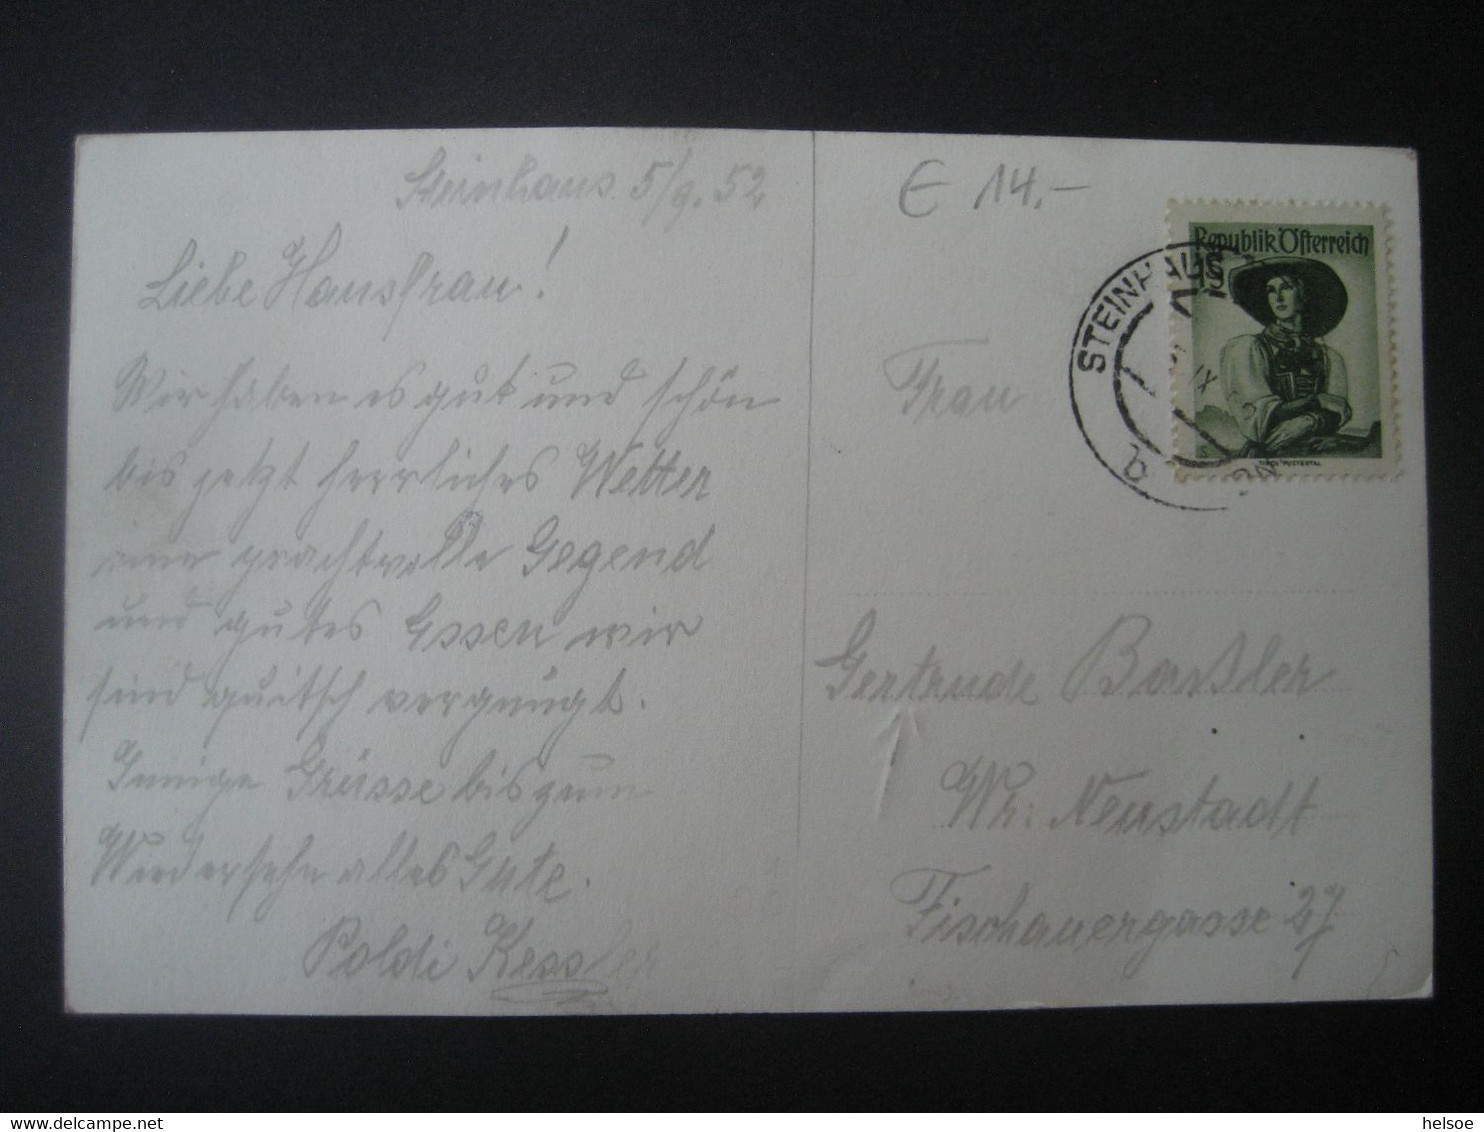 Steinhaus 5/9. 52
Liebe Hausfrau!
Wir haben es gut und schön
bis jetzt herrliches Wetter
eine prachtvolle Gegend
und gutes Essen wir
sind quitsch vergnügt.
Innige Grüsse bis zum
Wiedersehn alles Gute.
Poldi Kessler
€ 14.-
Republik Österreich
STEINHAUS
IX
b
Frau
Gertrude Baßler
Wr: Neustadt
Fischauergasse 27
helsoe